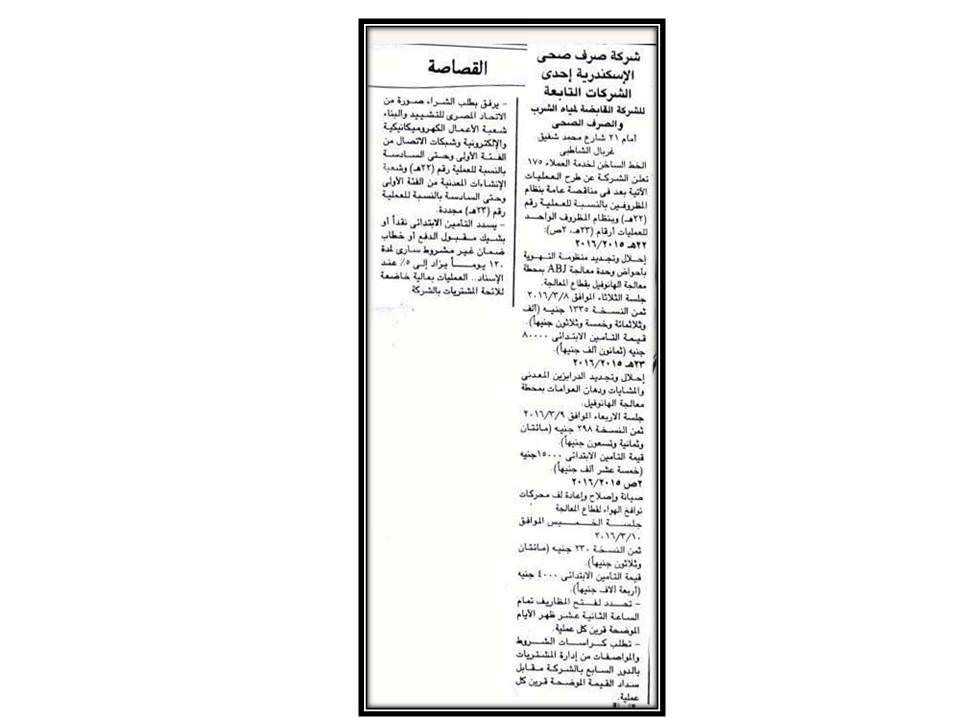 شركة صرف صحى
الإسكندرية إحدى
الشركات التابعة
للشركة القابضة لمياه الشرب
والصرف الصحى
أمام ٢١ شارع محمد شفيق
غربال الشاطبى
الخط الساخن لخدمة العملاء ١٧٥
تعلن الشركة عن طرح العمليات
الآتية بعد فى مناقصة عامة بنظام
المظروفين بالنسبة للعملية رقم
(٢٢هـ) وبنظام المظروف الواحد
للعمليات أرقام (٢٣هـ، ٢ص):
٢٢هـ ٢٠١٦/٢٠١٥
إحلال وتجديد منظومة التهوية
بأحواض وحدة معالجة ABJ بمحطة
معالجة الهانوفيل بقطاع المعالجة.
جلسة الثلاثاء الموافق ٢٠١٦/٣/٨
ثمن النسخة ١٣٣٥ جنيه (ألف
وثلاثمائة وخمسة وثلاثون جنيهاً).
قيمة التأمين الابتدائى ٨٠٠٠٠
جنيه (ثمانون ألف جنيهاً).
٢٣هـ ٢٠١٦/٢٠١٥
إحلال وتجديد الدرابزين المعدنى
والمشايات ودهان العوامات بمحطة
معالجة الهانوفيل.
جلسة الأربعاء الموافق ٢٠١٦/٣/٩
ثمن النسخة ٢٩٨ جنيه (مائتان
وثمانية وتسعون جنيهاً).
قيمة التأمين الابتدائى ١٥٠٠٠جنيه
(خمسة عشر ألف جنيهاً).
٢ص ٢٠١٦/٢٠١٥
صيانة وإصلاح وإعادة لف محركات
نوافخ الهواء لقطاع المعالجة
جلسة الخميس الموافق
٢٠١٦/٣/١٠
ثمن النسخة ٢٣٠ جنيه (مائتان
وثلاثون جنيهاً).
قيمة التأمين الابتدائى ٤٠٠٠ جنيه
(أربعة آلاف جنيهاً).
- تحدد لفتح المظاريف تمام
الساعة الثانية عشر ظهر الأيام
الموضحة قرين كل عملية.
- تطلب كراسات الشروط
والمواصفات من إدارة المشتريات
بالدور السابع بالشركة مقابل
سداد القيمة الموضحة قرين كل
عملية.
القصاصة
- يرفق بطلب الشراء صورة من
الاتحاد المصرى للتشييد والبناء
شعبة الأعمال الكهروميكانيكية
والإلكترونية وشبكات الاتصال من
الفئة الأولى وحتى السادسة
بالنسبة للعملية رقم (٢٢هـ) وشعبة
الإنشاءات المعدنية من الفئة الأولى
وحتى السادسة بالنسبة للعملية
رقم (٢٣هـ) مجددة.
- يسدد التأمين الابتدائى نقداً أو
بشيك مقبول الدفع أو خطاب
ضمان غير مشروط سارى لمدة
١٢٠ يوماً يزاد إلى ٥٪ عند
الإسناد.. العمليات بعالية خاضعة
للائحة المشتريات بالشركة